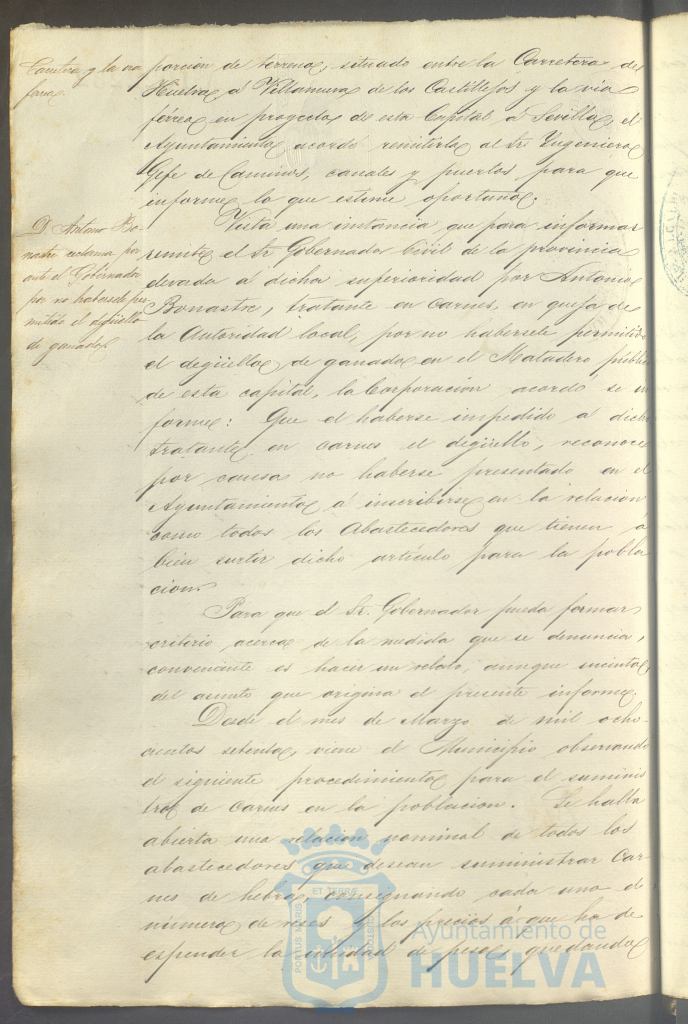 Carretera y la via
ferrea.
porcion de terreno, situado entre la Carretera de
Huelva á Villanueva de los Castillejos y la via
férrea en proyecto de esta Capital á Sevilla, el
Ayuntamiento acordó remitirla al Sr. Yngeniero
Gefe de Caminos, canales y puertos para que
informe lo que estime oportuno.
D. Antonio Bo-
nastre reclama por
ante el Gobernador
por no habersele per-
mitido el degüello
de ganado
Vista una instancia que para informar
remite el Sr. Gobernador Civil de la provincia
elevada á dicha superioridad por Antonio
Bonastre, tratante en carnes, en queja de
la Autoridad local, por no habersele permitido
el degüello de ganado en el Matadero públi
de esta capital, la Corporacion acordó se in
forme: Que el haberse impedido á dicho
tratante en carnes el degüello, reconoce
por causa no haberse presentado en el
Ayuntamiento á inscribirse en la relacion
como todos los Abastecedores que tienen á
bien surtir dicho artículo para la pobla
cion.
Para que el Sr. Gobernador pueda formar
criterio acerca de la medida que se denuncia,
conveniente es hacer un relato, aunque sucinto,
del asunto que origina el presente informe.
Desde el mes de Marzo de mil ocho-
cientos setenta, viene el Municipio observando
el siguiente procedimiento para el suminis
tro de carnes en la poblacion. Se halla
abierta una relacion nominal de todos los
abastecedores que desean suministrar car-
nes de hebra, consignando cada uno el
número de reses y los precios á que ha de
espender la unidad de peso, quedando
PORTUS MARIS ET TERRÆ CUSTODIA
Ayuntamiento de
HUELVA